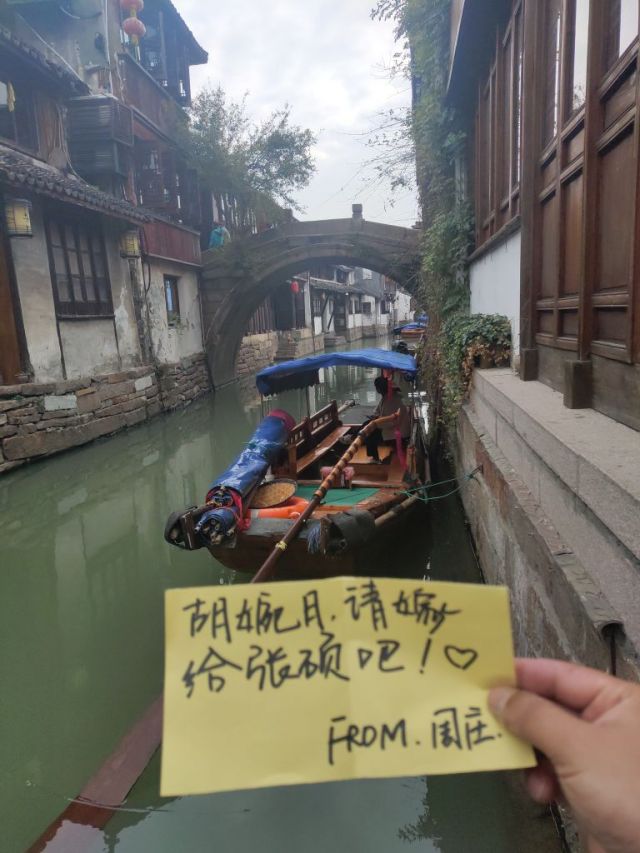 胡婉月.请嫁
给张硕吧!♡
FROM.周庄.